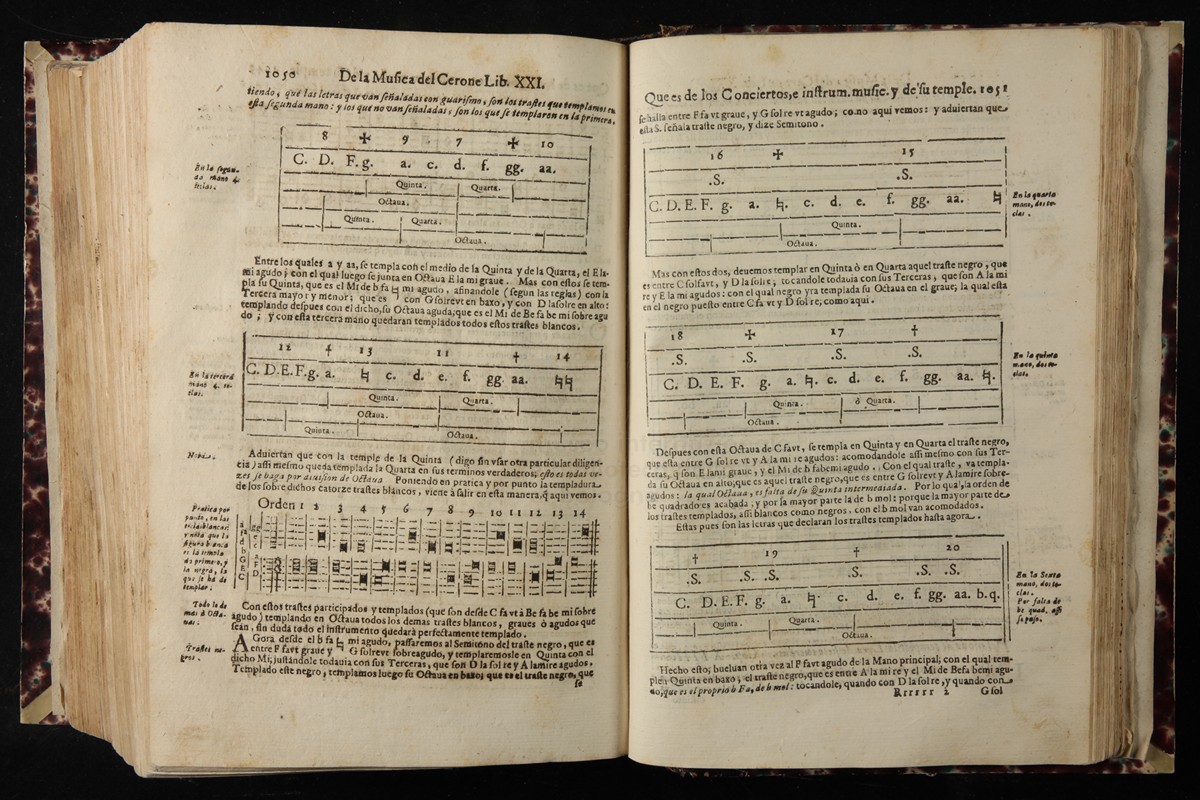 1050 De la Musica del Cerone Lib. XXI.
tiendo, que las letras que van señaladas con guarismo, son los trastes que templamos en
esta segunda mano: y los que no van señaladas, son los que se templaron en la primera.
8 ✠ 9 7 ✠ 10
C. D. F. g. a. c. d. f. gg. aa.
Quinta. Quarta.
Octaua.
Quinta. Quarta.
Octaua.
En la segun-
da mano 4.
teclas.
Entre los quales a y aa, se templa con el medio de la Quinta y de la Quarta, el E la-
mi agudo; con el qual luego se junta en Octaua E la mi graue. Mas con estos se tem-
pla su Quinta, que es el Mi de b fa ♮ mi agudo, afinandole (segun las reglas) con la
Tercera mayor y menor: que es con G solreut en baxo, y con D lasolre en alto:
templando despues con el dicho, su Octaua aguda; que es el Mi de Be fa be mi sobre agu
do; y con esta tercera mano quedaran templados todos estos trastes blancos.
12 † 13 11 † 14
C. D. E. F. g. a. ♮ c. d. e. f. gg. aa. ♮♮
Quinta. Quarta.
Octaua.
Quinta. Octaua.
En la tercera
mano 4. te-
clas.
Nota.
Aduiertan que con la temple de la Quinta (digo sin vsar otra particular diligen-
cia) assi mesmo queda templada la Quarta en sus terminos verdaderos; esto es todas ve-
zes se haga por diuision de Octaua Poniendo en pratica y por punto la templadura
de los sobre dichos catorze trastes blancos, viene à salir en esta manera, q̄ aqui vemos.
Orden 1 2 3 4 5 6 7 8 9 10 11 12 13 14
Pratica por
punto, en las
teclas blancas:
y nota que la
figura blanca
es la templa
da primero, y
la negra, la
que se ha de
templar.
Con estos trastes participados y templados (que son desde C fa vt à Be fa be mi sobre
agudo) templando en Octaua todos los demas trastes blancos, graues ò agudos que
sean, sin duda todo el instrumento quedarà perfectamente templado.
Todo lo de
mas à Octa-
uas.
AGora desde el b fa ♮ mi agudo, passaremos al Semitono del traste negro, que es
entre F faut graue y G solreut sobreagudo, y templaremosle en Quinta con el
dicho Mi, justandole todauia con sus Terceras, que son D la sol re y A lamire agudos.
Templado este negro, templamos luego su Octaua en baxo; que es el traste negro, que
Trastes ne-
gros.
se
Que es de los Conciertos, e instrum. music. y de su temple. 1051
se halla entre F fa vt graue, y G sol re vt agudo; como aqui vemos: y aduiertan que
esta S. señala traste negro, y dize Semitono.
16 ✠ 15
.S. .S.
C. D. E. F. g. a. ♮. c. d. e. f. gg. aa. ♮
Quinta.
Octaua.
En la quarta
mano, dos te-
clas.
Mas con estos dos, deuemos templar en Quinta ò en Quarta aquel traste negro, que
es entre C solfaut, y D lasolre; tocandole todauia con sus Terceras, que son A la mi
re y E la mi agudos: con el qual negro yra templada su Octaua en el graue; la qual està
en el negro puesto entre C fa vt y D sol re; como aqui.
18 ✠ 17 †
.S. .S. .S. .S.
C. D. E. F. g. a. ♮. c. d. e. f. gg. aa. ♮.
Quinta. ò Quarta.
Octaua.
En la quinta
mano, dos te-
clas.
Despues con esta Octaua de C faut, se templa en Quinta y en Quarta el traste negro,
que esta entre G sol re vt y A la mi re agudos: acomodandole assi mesmo con sus Ter-
ceras, q̄ son E lami graue, y el Mi de b fabemi agudo. Con el qual traste, va templa-
da su Octaua en alto; que es aquel traste negro, que es entre G solreut y A lamire sobre-
agudos: la qual Octaua, es falta de su Quinta intermediada. Por lo qual, la orden de
be quadrado es acabada; y por la mayor parte la de b mol: porque la mayor parte de
los trastes templados, assi blancos como negros, con el b mol van acomodados.
Estas pues son las letras que declaran los trastes templados hasta agora.
† 19 † 20
.S. .S. .S. .S. .S. .S.
C. D. E. F. g. a. ♮. c. d. e. f. gg. aa. b. q.
Quinta. Quarta.
Octaua.
En la Sexta
mano, dos te-
clas.
Por falta de
be quad. assi
se puso.
Hecho esto; bueluan otra vez al F faut agudo de la Mano principal; con el qual tem-
plen Quinta en baxo; el traste negro, que es entre A la mi re y el Mi de Befa bemi agu-
do, que es el proprio b Fa, de b mol: tocandole, quando con D la sol re, y quando con
Rrrrrr 2 G sol